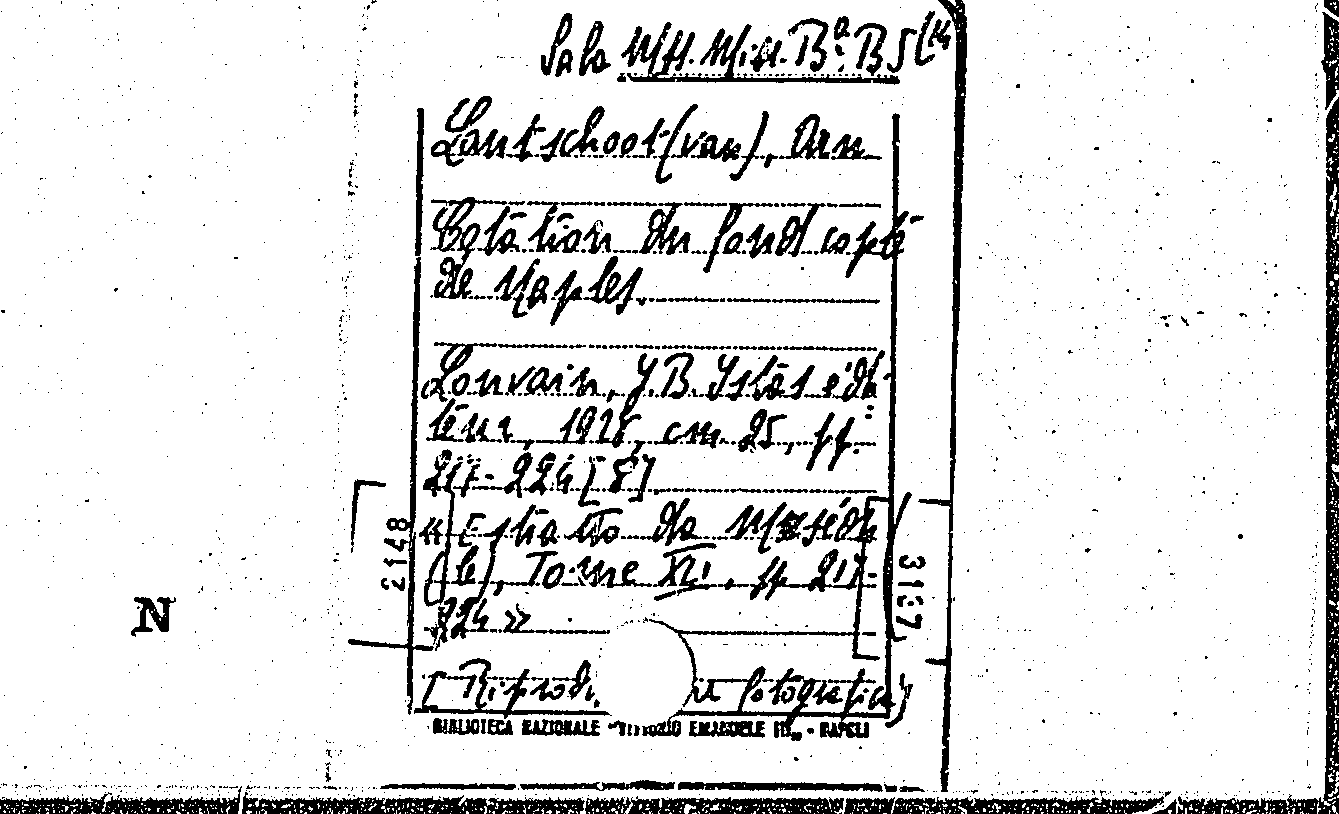 Sala Mss. Misc. Bª. B 5(14
Lantschoot (van), Arn
Cotation du fond copte
de Naples.
Louvain, J.B. Istas édi-
teur, 1928, cm. 25, pp.
217-224 [8]
« Estratto da Muséon
(le), Tome XLI, pp 217-
224 »
[Riprodu ne fotografica]
BIBLIOTECA NAZIONALE "VITTORIO EMANUELE III" - NAPOLI
2148
3137
N